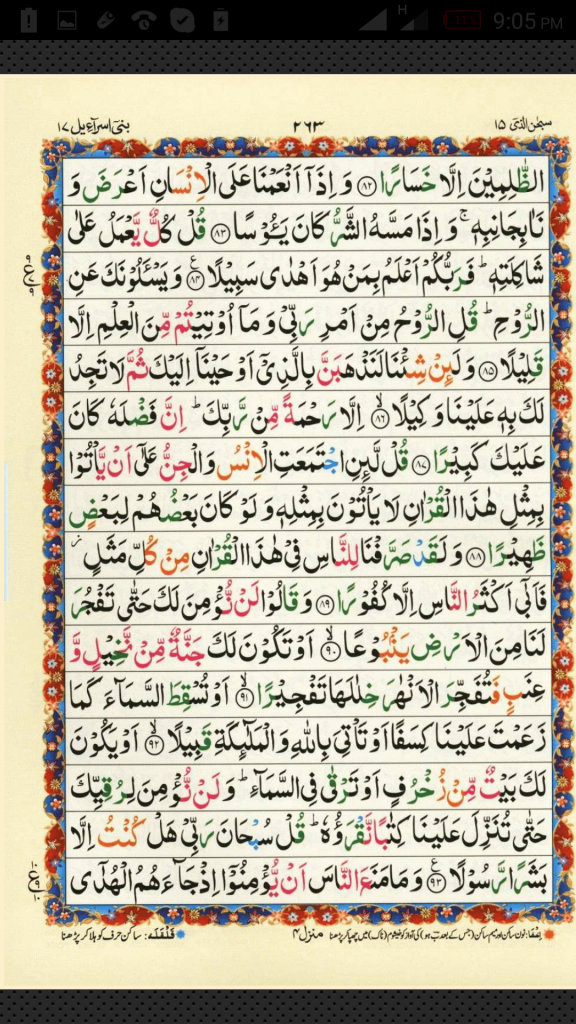 H 11% 9:05 PM
سبحٰن الذی ١٥ ٢٦٣ بنیٓ اسرآءیل ١٧
الظّٰلِمِیْنَ اِلَّا خَسَارًا ﴿٨٢﴾ وَ اِذَاۤ اَنْعَمْنَا عَلَی الْاِنْسَانِ اَعْرَضَ وَ
نَاٰ بِجَانِبِهٖ ۚ وَ اِذَا مَسَّهُ الشَّرُّ كَانَ یَـُٔوْسًا ﴿٨٣﴾ قُلْ كُلٌّ یَّعْمَلُ عَلٰی
شَاكِلَتِهٖ ؕ فَرَبُّكُمْ اَعْلَمُ بِمَنْ هُوَ اَهْدٰی سَبِیْلًا ﴿٨٤﴾ ع وَ یَسْـَٔلُوْنَكَ عَنِ
الرُّوْحِ ؕ قُلِ الرُّوْحُ مِنْ اَمْرِ رَبِّیْ وَ مَاۤ اُوْتِیْتُمْ مِّنَ الْعِلْمِ اِلَّا
قَلِیْلًا ﴿٨٥﴾ وَ لَىِٕنْ شِئْنَا لَنَذْهَبَنَّ بِالَّذِیْۤ اَوْحَیْنَاۤ اِلَیْكَ ثُمَّ لَا تَجِدُ
لَكَ بِهٖ عَلَیْنَا وَكِیْلًا ﴿٨٦﴾ۙ اِلَّا رَحْمَةً مِّنْ رَّبِّكَ ؕ اِنَّ فَضْلَهٗ كَانَ
عَلَیْكَ كَبِیْرًا ﴿٨٧﴾ قُلْ لَّىِٕنِ اجْتَمَعَتِ الْاِنْسُ وَ الْجِنُّ عَلٰۤی اَنْ یَّاْتُوْا
بِمِثْلِ هٰذَا الْقُرْاٰنِ لَا یَاْتُوْنَ بِمِثْلِهٖ وَ لَوْ كَانَ بَعْضُهُمْ لِبَعْضٍ
ظَهِیْرًا ﴿٨٨﴾ وَ لَقَدْ صَرَّفْنَا لِلنَّاسِ فِیْ هٰذَا الْقُرْاٰنِ مِنْ كُلِّ مَثَلٍ ؗ
فَاَبٰۤی اَكْثَرُ النَّاسِ اِلَّا كُفُوْرًا ﴿٨٩﴾ وَ قَالُوْا لَنْ نُّؤْمِنَ لَكَ حَتّٰی تَفْجُرَ
لَنَا مِنَ الْاَرْضِ یَنْۢبُوْعًا ﴿٩٠﴾ۙ اَوْ تَكُوْنَ لَكَ جَنَّةٌ مِّنْ نَّخِیْلٍ وَّ
عِنَبٍ فَتُفَجِّرَ الْاَنْهٰرَ خِلٰلَهَا تَفْجِیْرًا ﴿٩١﴾ۙ اَوْ تُسْقِطَ السَّمَآءَ كَمَا
زَعَمْتَ عَلَیْنَا كِسَفًا اَوْ تَاْتِیَ بِاللّٰهِ وَ الْمَلٰٓىِٕكَةِ قَبِیْلًا ﴿٩٢﴾ۙ اَوْ یَكُوْنَ
لَكَ بَیْتٌ مِّنْ زُخْرُفٍ اَوْ تَرْقٰی فِی السَّمَآءِ ؕ وَ لَنْ نُّؤْمِنَ لِرُقِیِّكَ
حَتّٰی تُنَزِّلَ عَلَیْنَا كِتٰبًا نَّقْرَؤُهٗ ؕ قُلْ سُبْحَانَ رَبِّیْ هَلْ كُنْتُ اِلَّا
بَشَرًا رَّسُوْلًا ﴿٩٣﴾ ع وَ مَا مَنَعَ النَّاسَ اَنْ یُّؤْمِنُوْۤا اِذْ جَآءَهُمُ الْهُدٰۤی
اِخْفَا: نون ساکن اور میم ساکن (جس کے بعد ب ہو) کی آواز کو خیشوم (ناک) میں چھپا کر پڑھنا منزل ٤ قَلْقَلَه: ساکن حرف کو ہلا کر پڑھنا